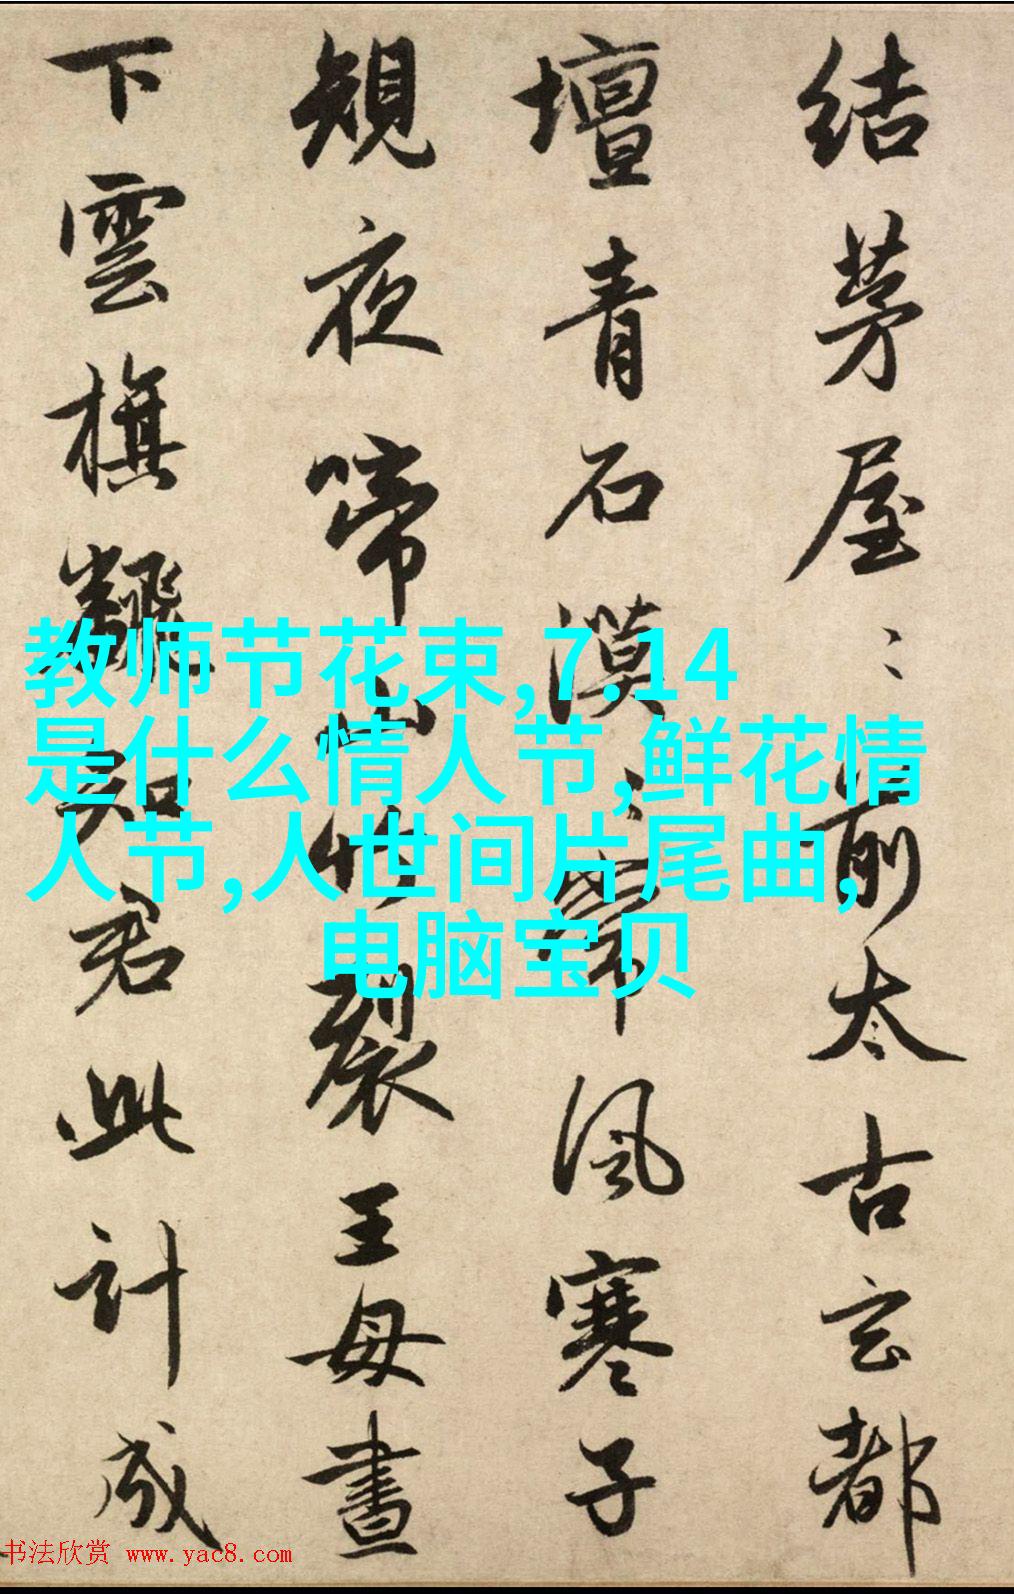 结茅屋〻前太古玄都
壇青石漠〻常風寒子
規夜啼山竹裂王母晝
下雲旗翻知君此計成
教师节花束,7.14
是什么情人节,鲜花情
人节,人世间片尾曲,
电脑宝贝
书法欣赏 www.yac8.com